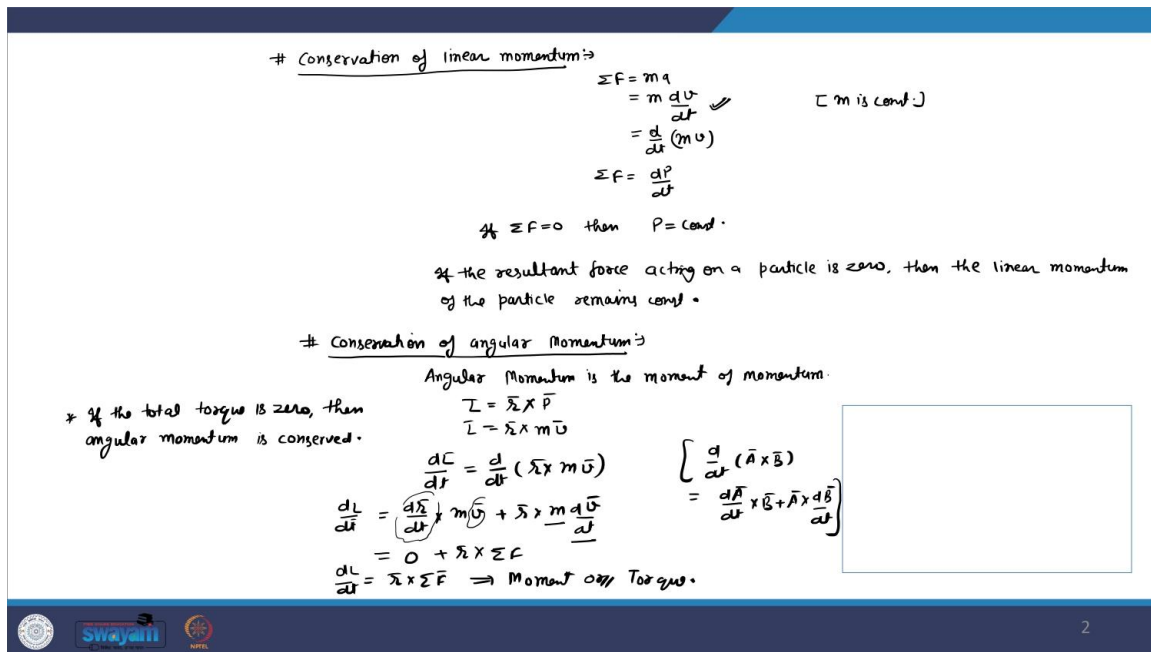 # Conservation of linear momentum :→
ΣF = ma
= m dv/dt ✓ [m is const.]
= d/dt (mv)
ΣF = dP/dt
If ΣF=0 then P = const.
If the resultant force acting on a particle is zero, then the linear momentum
of the particle remains const.
# Conservation of angular Momentum :→
Angular Momentum is the moment of momentum.
* If the total torque is zero, then
angular momentum is conserved.
L̄ = r̄ × P̄
L̄ = r̄ × mv̄
dL̄/dt = d/dt (r̄ × mv̄)
[d/dt (Ā × B̄)
= dĀ/dt × B̄ + Ā × dB̄/dt]
dL/dt = dr̄/dt × mv̄ + r̄ × m dv̄/dt
= 0 + r̄ × ΣF
dL/dt = r̄ × ΣF̄ ⇒ Moment or Torque.
swayam
NPTEL
2